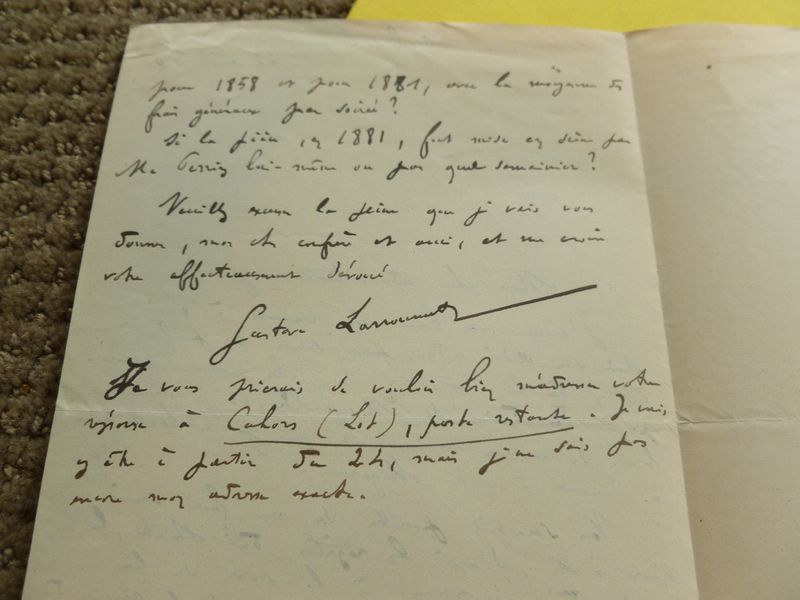 pour 1858 et pour 1881, avec la moyenne des
frais généraux par soirée?
Si la pièce, en 1881, fut mise en scène par
Mr Perrin lui-même ou par quel semainier?
Veuillez excuser la peine que je vais vous
donner, mon cher confrère et ami, et me croire
votre affectueusement dévoué
Gustave Larroumet
Je vous prierais de vouloir bien m'adresser votre
réponse à Cahors (Lot), poste restante. Je vais
y être à partir du 24, mais je ne sais pas
encore mon adresse exacte.